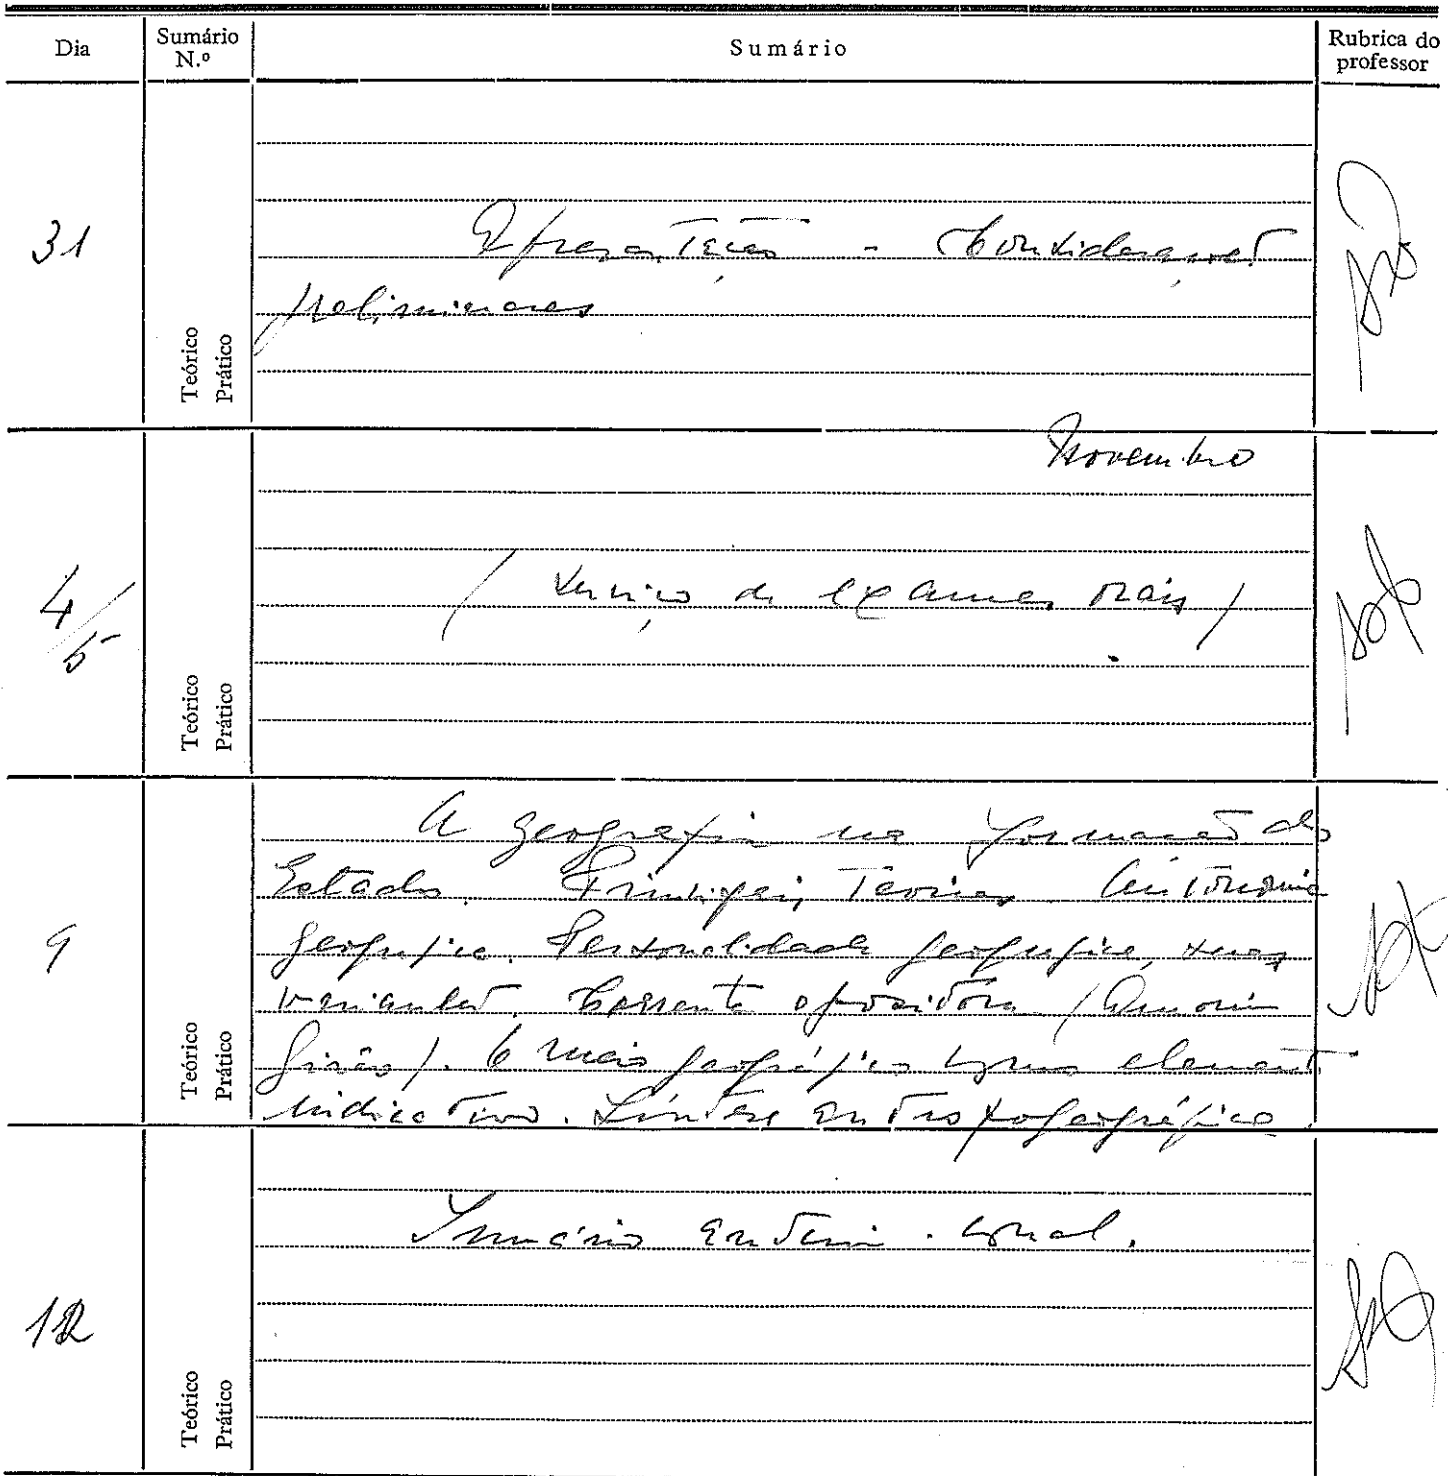 Dia
Sumário N.º
Sumário
Rubrica do professor
31
Teórico
Prático
Apresentação - Considerações
preliminares
Novembro
4/5
Teórico
Prático
( Serviço de exames orais )
9
Teórico
Prático
A geografia na formação do
Estado. Principais teorias. Autonomia
geográfica. Personalidade geográfica, suas
variantes. Corrente opositora (Amorim
Girão). O meio geográfico como elemento
indicativo. Síntese antropogeográfica.
12
Teórico
Prático
Sumário